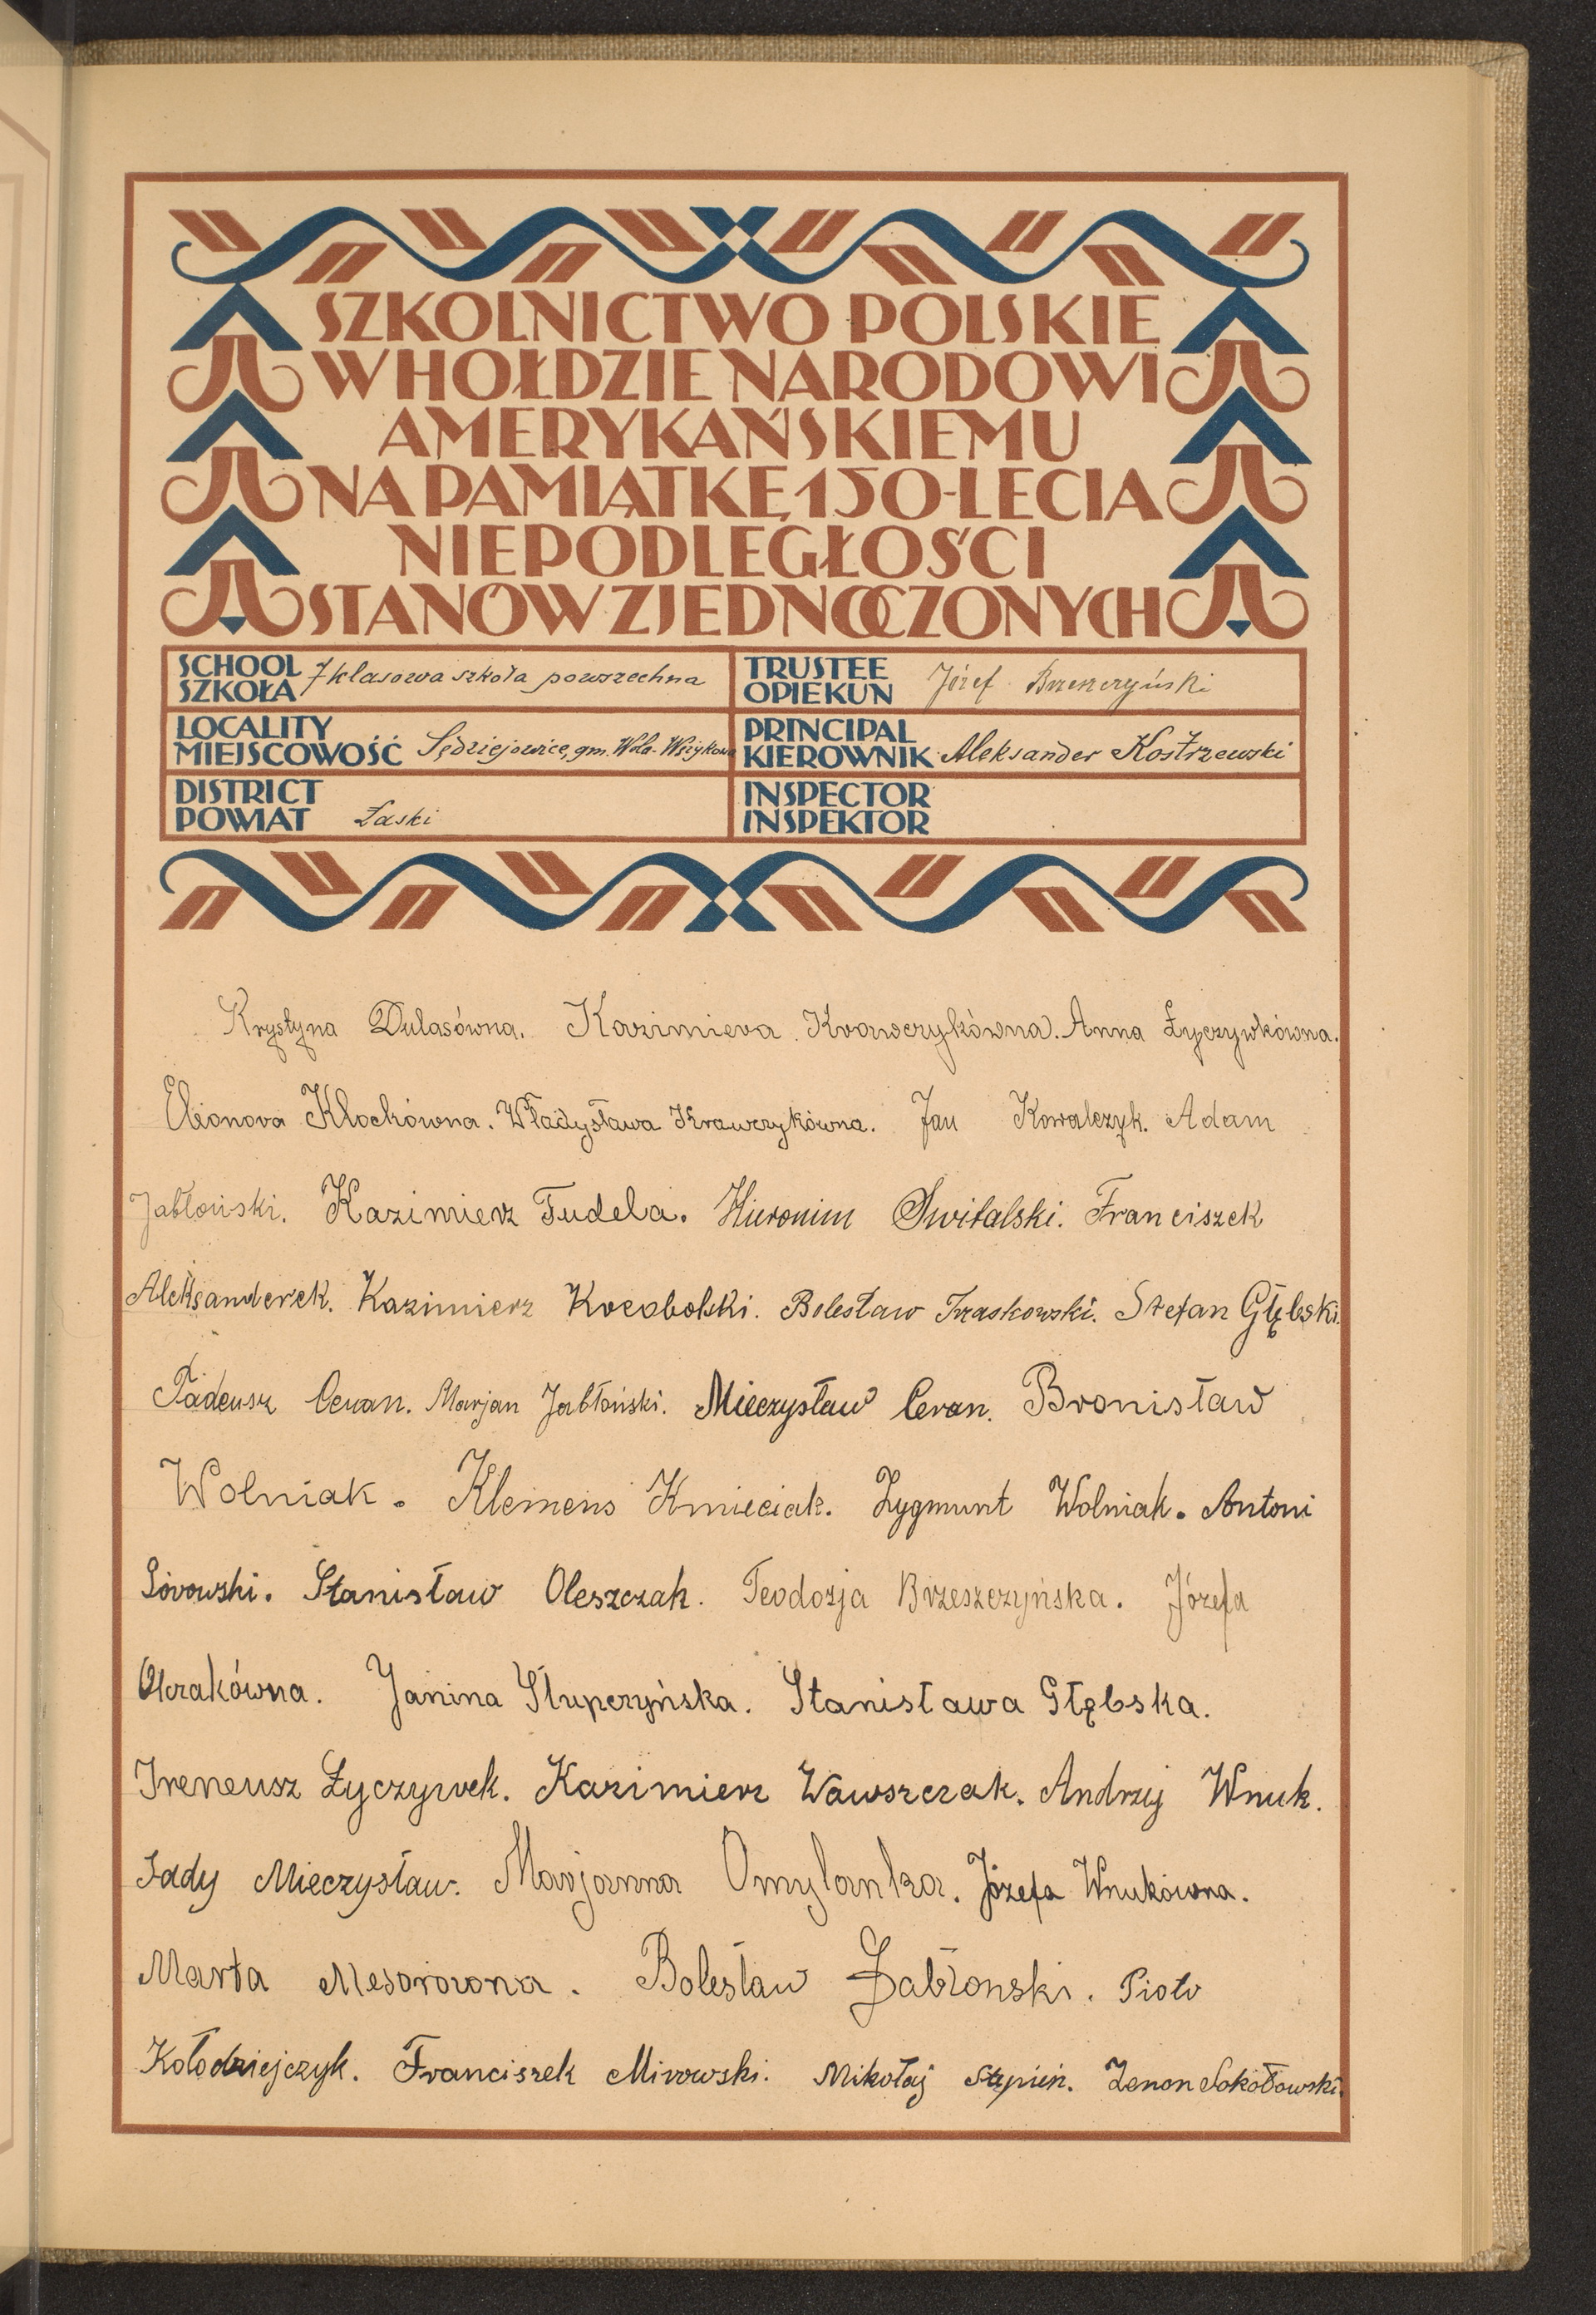 SZKOLNICTWO POLSKIE
W HOŁDZIE NARODOWI
AMERYKAŃSKIEMU
NA PAMIĄTKĘ 150-LECIA
NIEPODLEGŁOŚCI
STANÓW ZJEDNOCZONYCH
SCHOOL
SZKOŁA 7 klasowa szkoła powszechna
TRUSTEE
OPIEKUN Józef Brzeszczyński
LOCALITY
MIEJSCOWOŚĆ Sędziejowice, gm. Wola-Wężykowa
PRINCIPAL
KIEROWNIK Aleksander Kostrzewski
DISTRICT
POWIAT Łaski
INSPECTOR
INSPEKTOR
Krystyna Dulasówna. Kazimiera Krawczykówna. Anna Życzywkówna.
Eleonora Klochówna. Władysława Krawczykówna. Jan Kowalczyk. Adam
Jabłoński. Kazimierz Fudela. Hieronim Switalski. Franciszek
Aleksanderek. Kazimierz Kocobolski. Bolesław Traskowski. Stefan Głębski.
Tadeusz Ceran. Marjan Jabłoński. Mieczysław Ceran. Bronisław
Wolniak. Klemens Kmieciak. Zygmunt Wolniak. Antoni
Sirowski. Stanisław Oleszczak. Teodozja Brzeszczyńska. Józefa
Okrakówna. Janina Słupczyńska. Stanisława Głębska.
Ireneusz Życzywek. Kazimierz Wawszczak. Andrzej Wnuk.
Sady Mieczysław. Marjanna Omylanka. Józefa Wnukówna.
Marta Mesorowna. Bolesław Jabłonski. Piotr
Kołodziejczyk. Franciszek Mirowski. Mikołaj Stępień. Zenon Sokołowski.